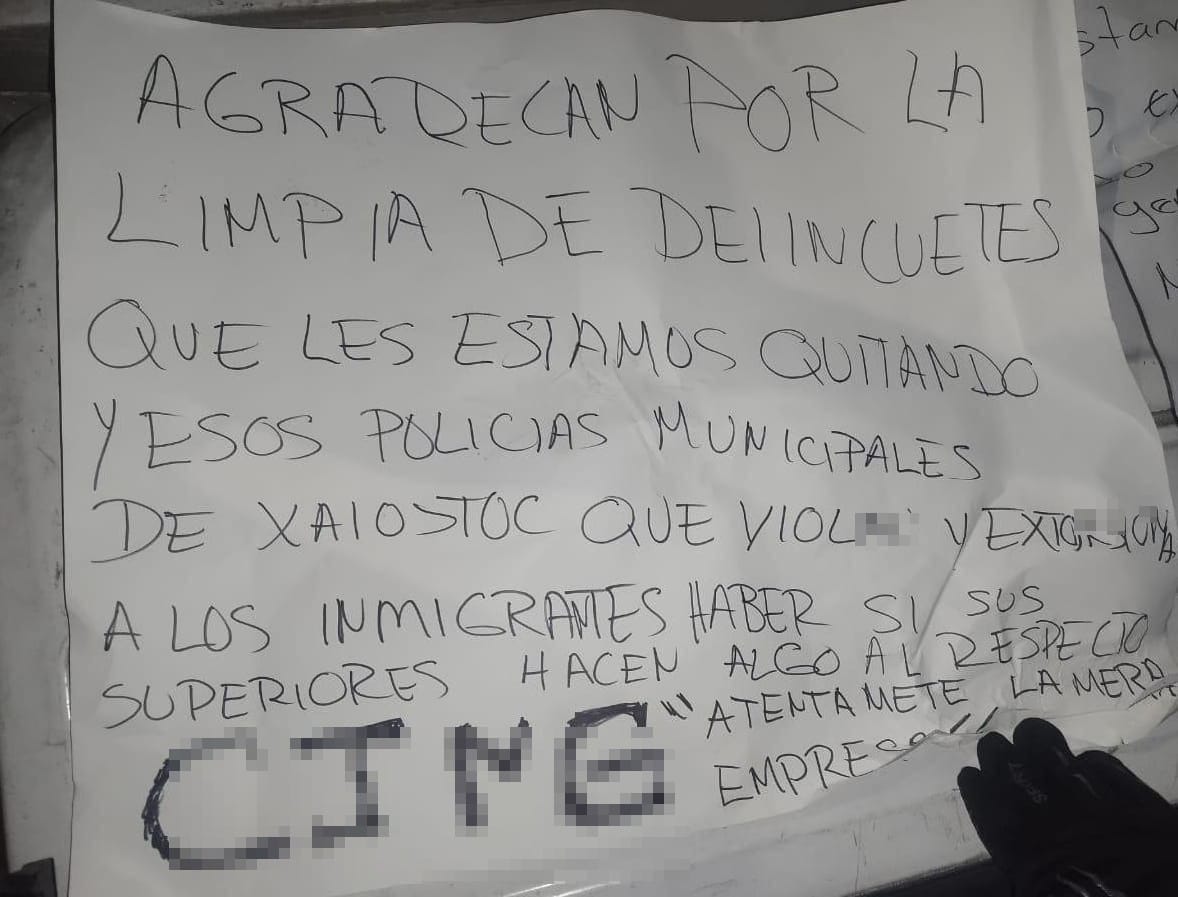 AGRADECAN POR LA
LIMPIA DE DELINCUETES
QUE LES ESTAMOS QUITANDO
Y ESOS POLICIAS MUNICIPALES
DE XAIOSTOC QUE Y
A LOS INMIGRANTES HABER SI SUS
SUPERIORES HACEN ALGO AL RESPECTO
"ATENTAMETE LA MERA
EMPRESA"
CJNG